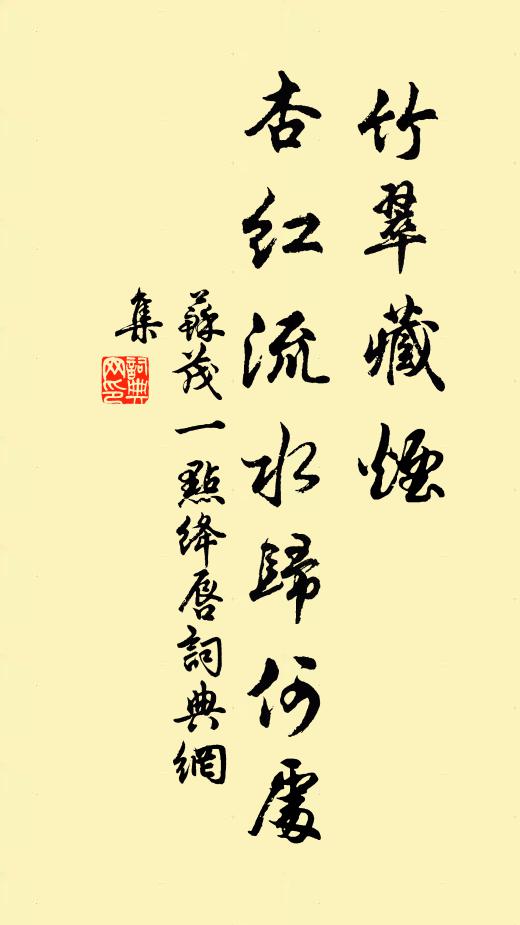 竹翠藏煙
杏紅流水歸何處
蘇茂一點絳唇詞典網
集
詞典
網印